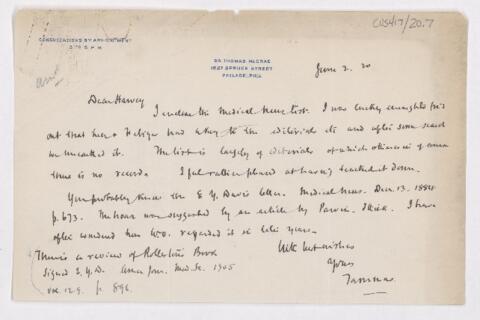 CUS417/20.7
CONSULTATIONS BY APPOINTMENT
2 TO 3 P.M.
DR. THOMAS MCCRAE
1627 SPRUCE STREET
PHILADA., PA.
June 2. 20
Dear Harvey
I enclose the Medical News list. I was lucky enough to find
out that Lea & Febiger had a key to the editorials etc and after some search
we unearthed it. The list is largely of editorials of which otherwise of course
there is no record. I feel rather pleased at having tracked it down.
You probably know the E. Y. Davis letter. Medical News. Dec. 13. 1884
p. 673. The humour was suggested by an article by Parvin. Ibid. I have
often wondered how W.O. regarded it in later years.
There is a review of Rolleston's Book
Signed E. Y. D. Amer Jour. Med. Sc. 1905
vol. 129. p. 896.
With best wishes
Yours
Tammas